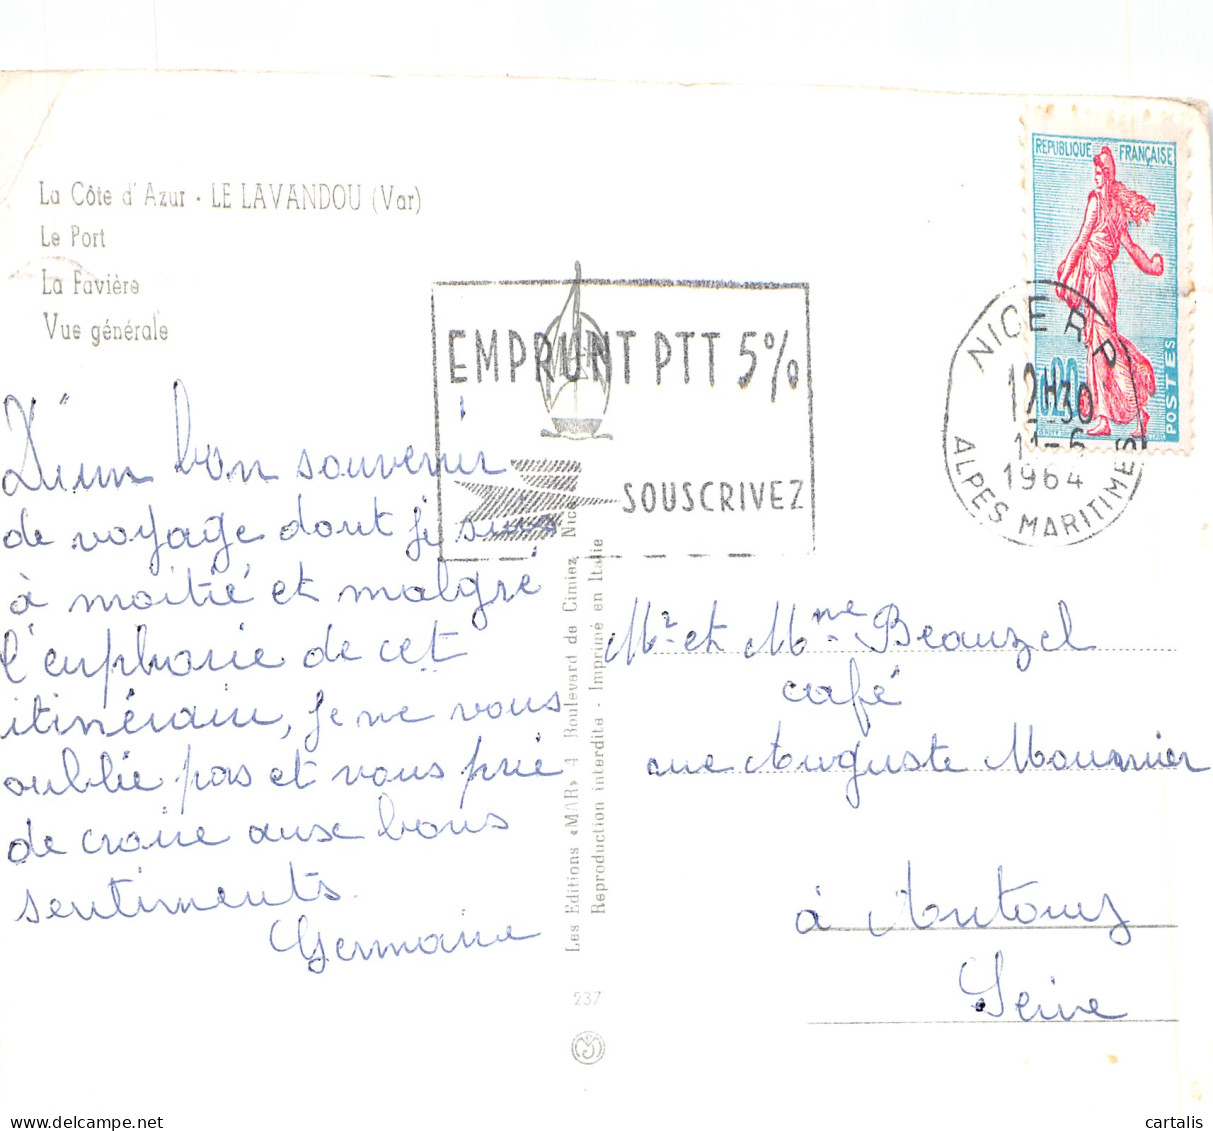 La Côte d'Azur - LE LAVANDOU (Var)
Le Port
La Favière
Vue générale
D'un bon souvenir
de voyage dont je suis
à moitié et malgré
l'euphorie de cet
itinérain, je ne vous
oublie pas et vous prie
de croire aux bons
sentiments.
Germaine
EMPRUNT PTT 5%
SOUSCRIVEZ
REPUBLIQUE FRANÇAISE
0,20
POSTES
NICE R.P.
12H30
11-6
1964
ALPES MARITIMES
Les Editions «MAR» 4 Boulevard de Cimiez Nice
Reproduction interdite - Imprimé en Italie
237
Mr et Mme Beauzel
café
rue Auguste Mounier
à Antony
Seine
cartalis